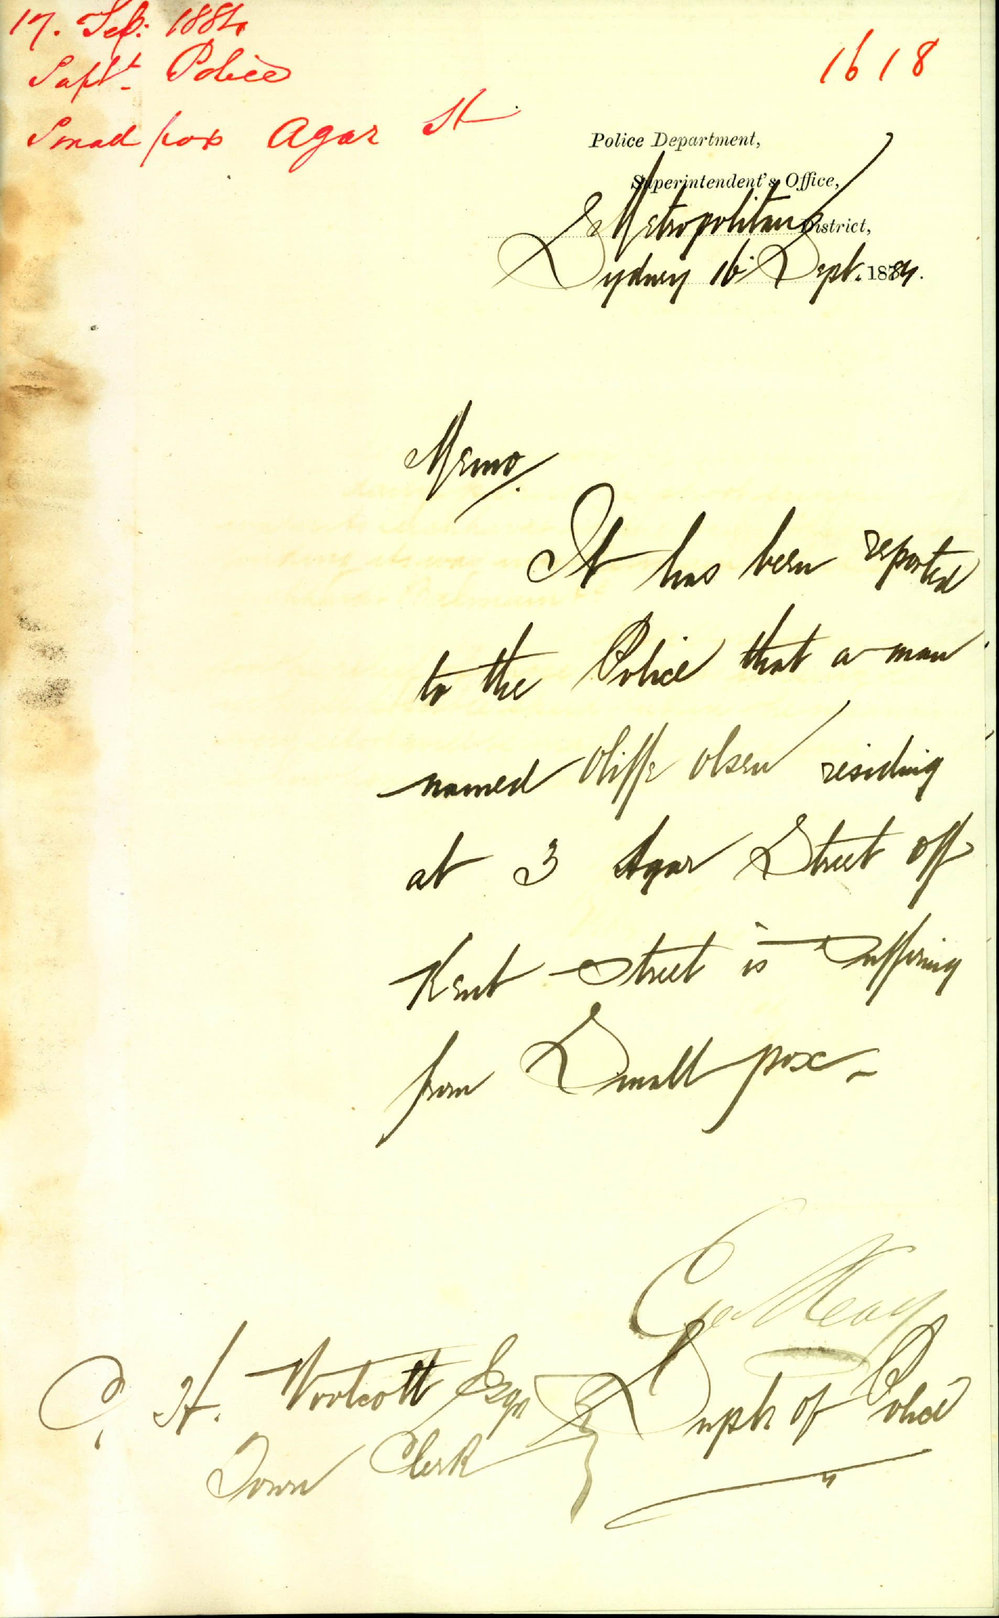 17. Sep: 1884
Supt. Police
Small pox Agar St
1618
Police Department,
Superintendent's Office,
Metropolitan District,
Sydney 16 Sept. 1884.
Memo.
It has been reported
to the Police that a man
named Oliffe Olsen residing
at 3 Agar Street off
Kent Street is Suffering
from Small pox
Geo Read
C. H. Woolcott Esqr Supt of Police
Town Clerk